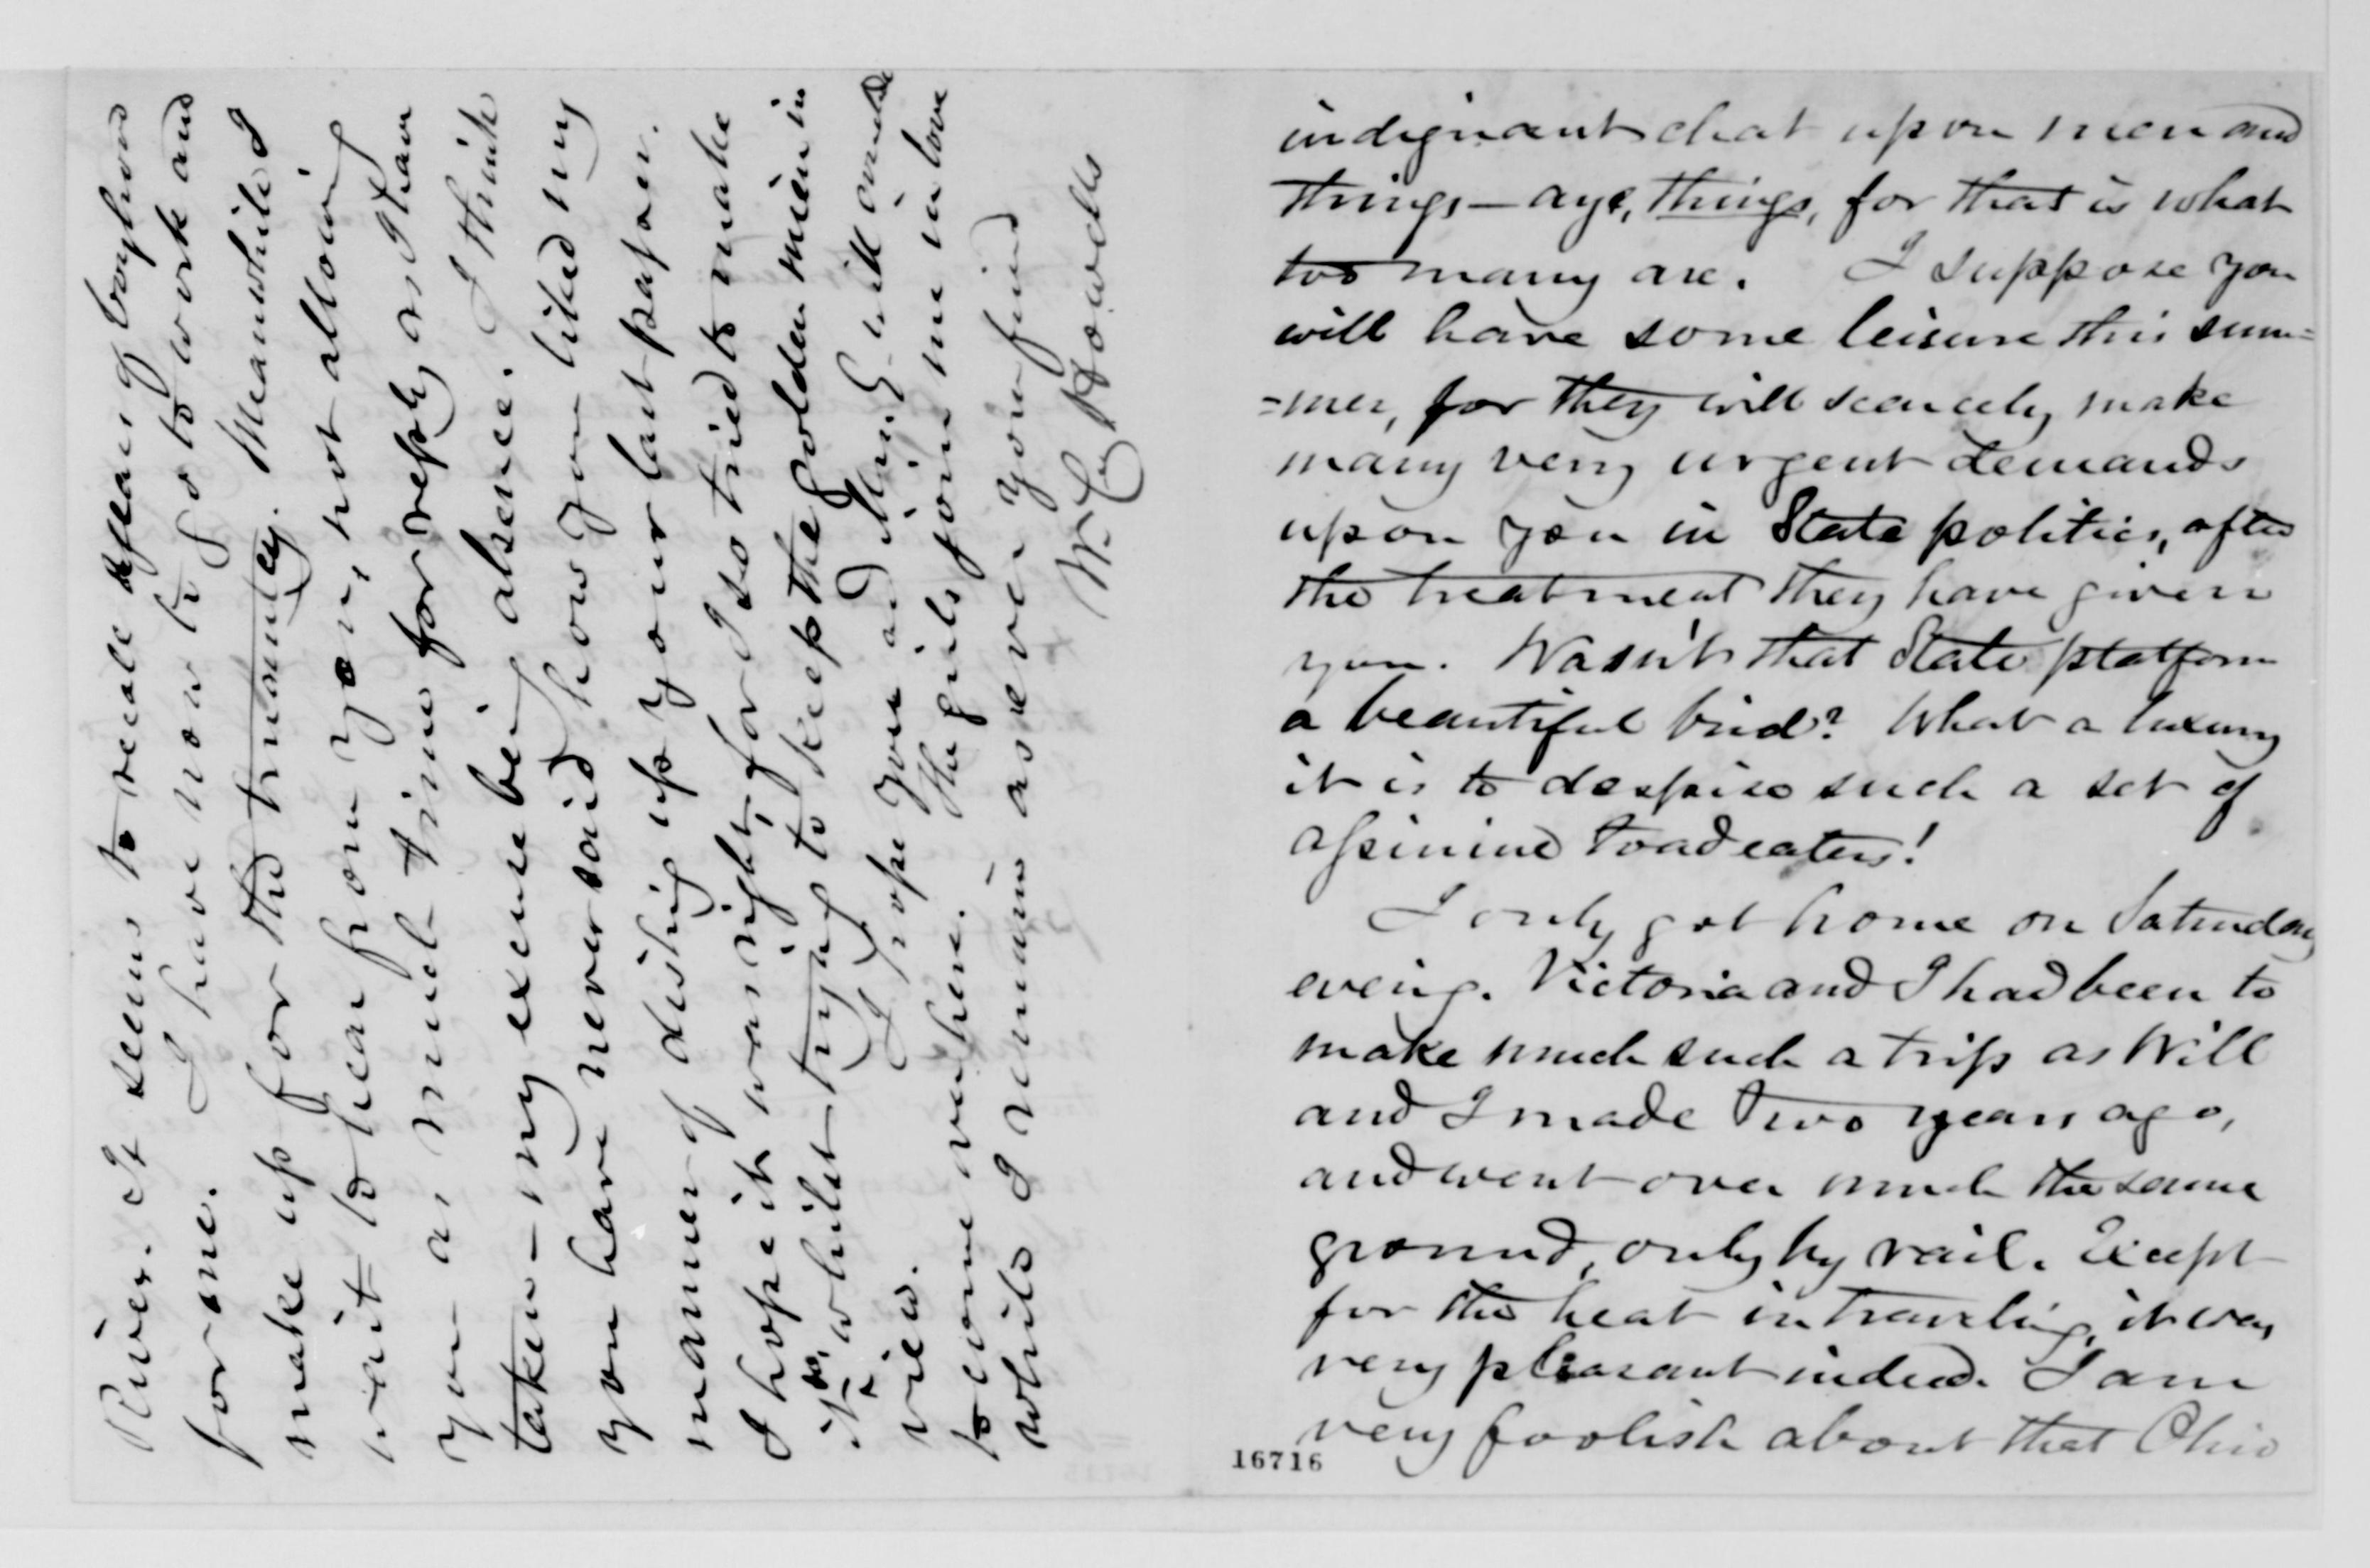 indignant chat upon men and
things — aye, things, for that is what
too many are. I suppose you
will have some leisure this sum=
=mer, for they will scarcely make
many very urgent demands
upon you in State politics, after
the treatment they have given
you. Wasn't that State platform
a beautiful bird? What a luxury
it is to despise such a set of
assinine toadeaters!
I only got home on Saturday
evening. Victoria and I had been to
make much such a trip as Will
and I made two years ago,
and went over much the same
ground, only by rail. Except
for the heat in traveling, it was
very pleasant indeed. I am
very foolish about that Ohio
16716
River. It seems to recall years of boyhood
for me. I have now to go to work and
make up for the truantcy. Meanwhile I
wait to hear from you, not allowing
you as much time for reply as I have
taken — my excuse being absence. I think
you have never said how you liked my
manner of dishing up your last paper.
I hope it was right, for I so tried to make
it so, whilst trying to keep the golden mien in
view. I hope you and Mrs. G will
to come up here. The girls join me in love
while I remain as ever your friend
W. C. Howells